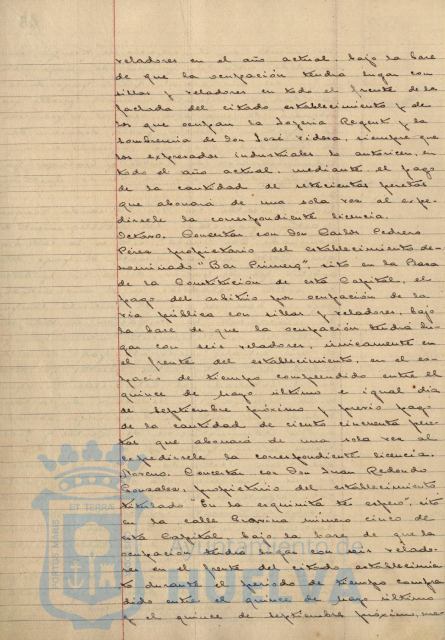 veladores en el año actual, bajo la base
de que la ocupación tendrá lugar con
sillas y veladores en todo el frente de la
fachada del citado establecimiento y de
los que ocupan la Joyería Regent y la
Sombrerería de Don José Videra, siempre que
los expresados industriales lo autoricen, en
todo el año actual, mediante el pago
de la cantidad de setecientas pesetas
que abonará de una sola vez al expe-
dírsele la correspondiente licencia.
Octavo. Concertar con Don Carlos Pedrero
Pérez propietario del establecimiento de-
nominado "Bar Primerq", sito en la Plaza
de la Constitución de esta Capital, el
pago del arbitrio por ocupación de la
vía pública con sillas y veladores, bajo
la base de que la ocupación tendrá lu-
gar con seis veladores, únicamente en
el frente del establecimiento, en el es-
pacio de tiempo comprendido entre el
quince de Mayo último e igual día
de septiembre próximo y previo pago
de la cantidad de ciento cincuenta pese-
tas que abonará de una sola vez al
expedírsele la correspondiente licencia.
Noveno. Concertar con Don Juan Redondo
González, propietario del establecimiento
titulado "En la esquinita te espero", sito
en la calle Gravina número cinco de
esta Capital, bajo la base de que la
ocupación tendrá lugar con seis velado-
res en el frente del citado establecimien-
to durante el periodo de tiempo compren-
dido entre el quince de Mayo último
y el quince de septiembre próximo, me-
PORTUS MARIS
ET TERRAE
Ayuntamiento de
HUELVA